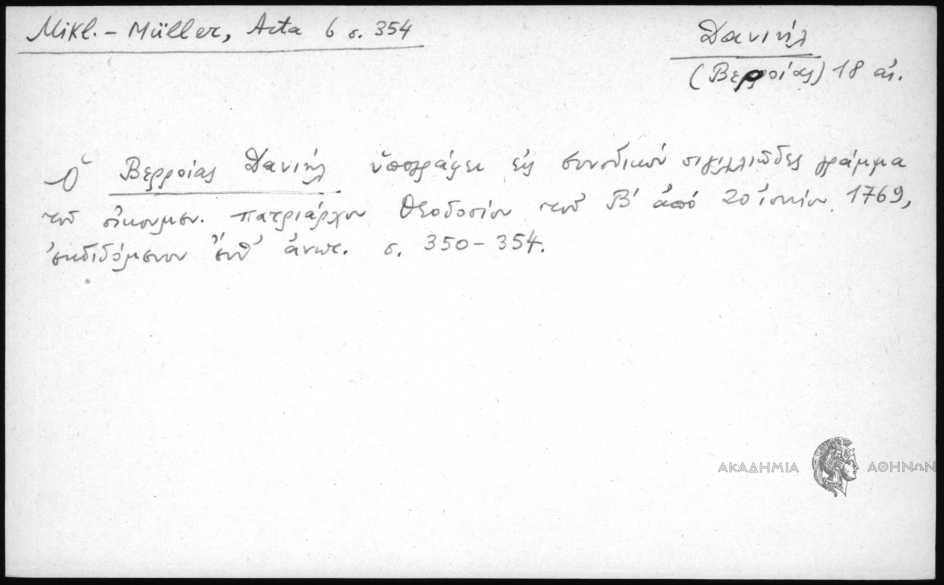 Mikl. - Müller, Acta 6 σ. 354
Δανιήλ
(Βερροίας) 18 αἰ.
Ὁ Βερροίας Δανιήλ ὑπογράφει εἰς συνοδικόν σιγιλλιῶδες γράμμα
τοῦ οἰκουμεν. πατριάρχου Θεοδοσίου τοῦ Β' ἀπό 20 ἰουνίου 1769,
ἐκδιδόμενον ἔνθ' ἀνωτ. σ. 350-354.
ΑΚΑΔΗΜΙΑ ΑΘΗΝΩΝ